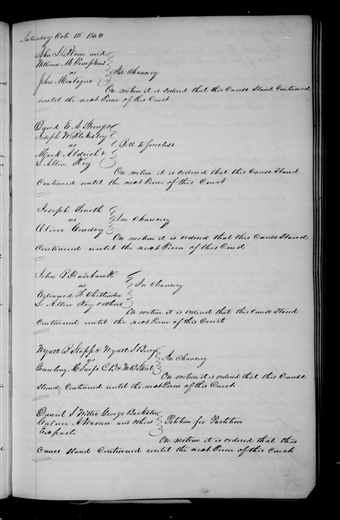 Saturday Oct 15 1842
John S. and
William M. Tompkins
vs In Chancery
John Montague
On motion it is ordered that this Cause Stand Continued
until the next Term of this Court
David E. S.
Joseph W.
vs Bill to foreclose
Mark Aldrich &
S. Allen Key
On motion it is ordered that this cause Stand
Continued until the next Term of this Court
Joseph Smith
vs In Chancery
Oliver
On motion it is ordered that this Cause Stand
Continued until the next Term of this Court
John P. Fairbank
vs In Chancery
Edward H. Chittenden
S. Allen Key & others
On motion it is ordered that this cause Stand
Continued until the next Term of this Court
Wyatt B. Stapp & Wyatt S. Berry
vs In Chancery
On motion it is ordered that this Cause
Stand Continued until the next Term of this Court
Daniel S. Witter George Backster
Warren and others Petition for Partition
Exparte
On motion it is ordered that this
Cause Stand Continued until the next Term of this Court